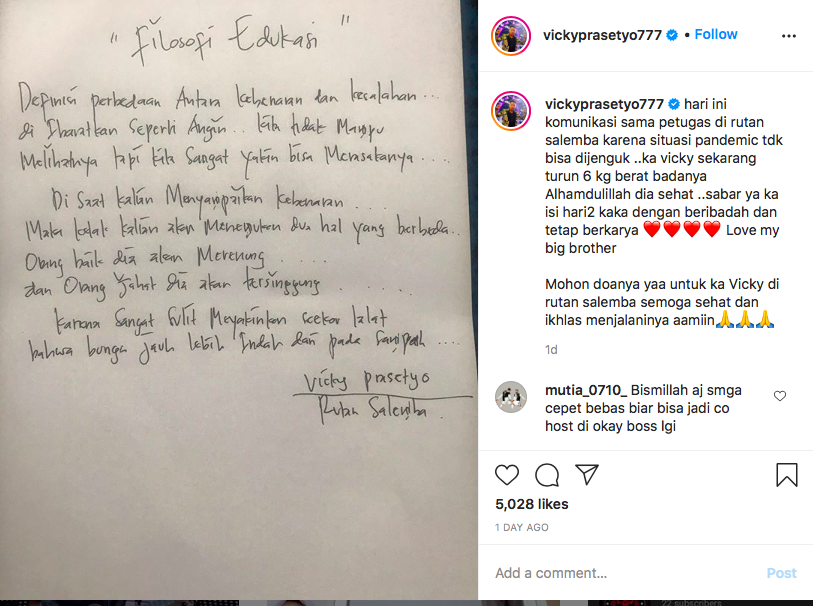 " Filosofi Edukasi "
Definisi perbedaan Antara kebenaran dan kesalahan ...
di Ibaratkan Seperti Angin .. kita tidak Mampu
Melihatnya tapi kita Sangat yakin bisa Merasakanya ....
Di Saat kalian Menyampaikan kebenaran ....
Maka kalian akan Menemukan dua hal yang berbeda ..
Orang baik dia akan Merenung .....
dan Orang Jahat dia akan tersinggung ......
karena Sangat Sulit Meyakinkan seekor lalat
bahwa bunga jauh lebih Indah dari pada Sampah ....
Vicky prasetyo
Rutan Salemba
vickyprasetyo777 • Follow
vickyprasetyo777 hari ini
komunikasi sama petugas di rutan
salemba karena situasi pandemic tdk
bisa dijenguk ..ka vicky sekarang
turun 6 kg berat badanya
Alhamdulillah dia sehat ..sabar ya ka
isi hari2 kaka dengan beribadah dan
tetap berkarya ❤️❤️❤️❤️ Love my
big brother
Mohon doanya yaa untuk ka Vicky di
rutan salemba semoga sehat dan
ikhlas menjalaninya aamiin🙏🙏🙏
1d
mutia_0710_ Bismillah aj smga
cepet bebas biar bisa jadi co
host di okay boss lgi
5,028 likes
1 DAY AGO
Add a comment... Post
22 subscribers